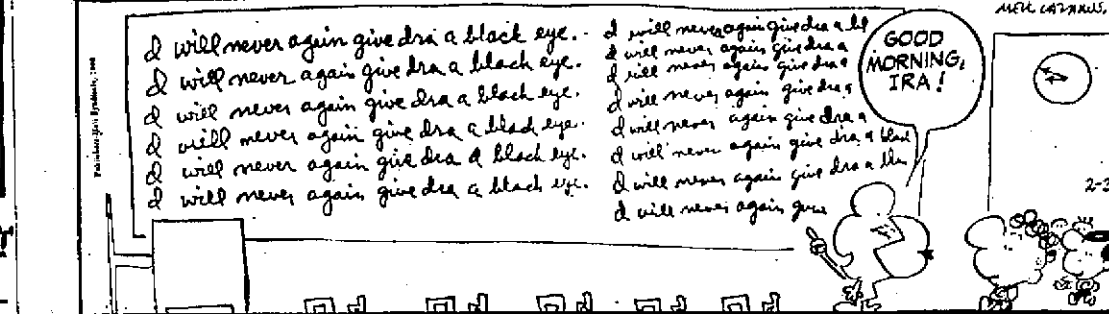 MELL LAZARUS.
I will never again give Ira a black eye.
I will never again give Ira a black eye.
I will never again give Ira a black eye.
I will never again give Ira a black eye.
I will never again give Ira a black eye.
I will never again give Ira a black eye.
I will never again give Ira a bl
I will never again give Ira a
I will never again give Ira a
I will never again give Ira a
I will never again give Ira a
I will never again give Ira a black
I will never again give Ira a bla
I will never again give
GOOD
MORNING,
IRA!